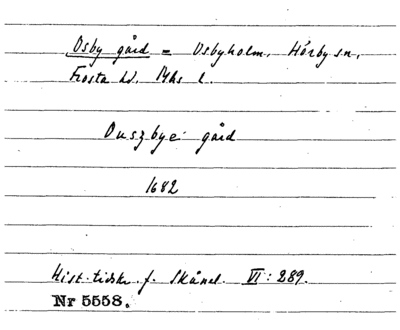 Osby gård = Osbyholm, Hörby sn,
Frosta hd. Mhs l.
Ouszbye gård
1682
Hist. tidskr. f. Skånel. VI: 289.
Nr 5558.